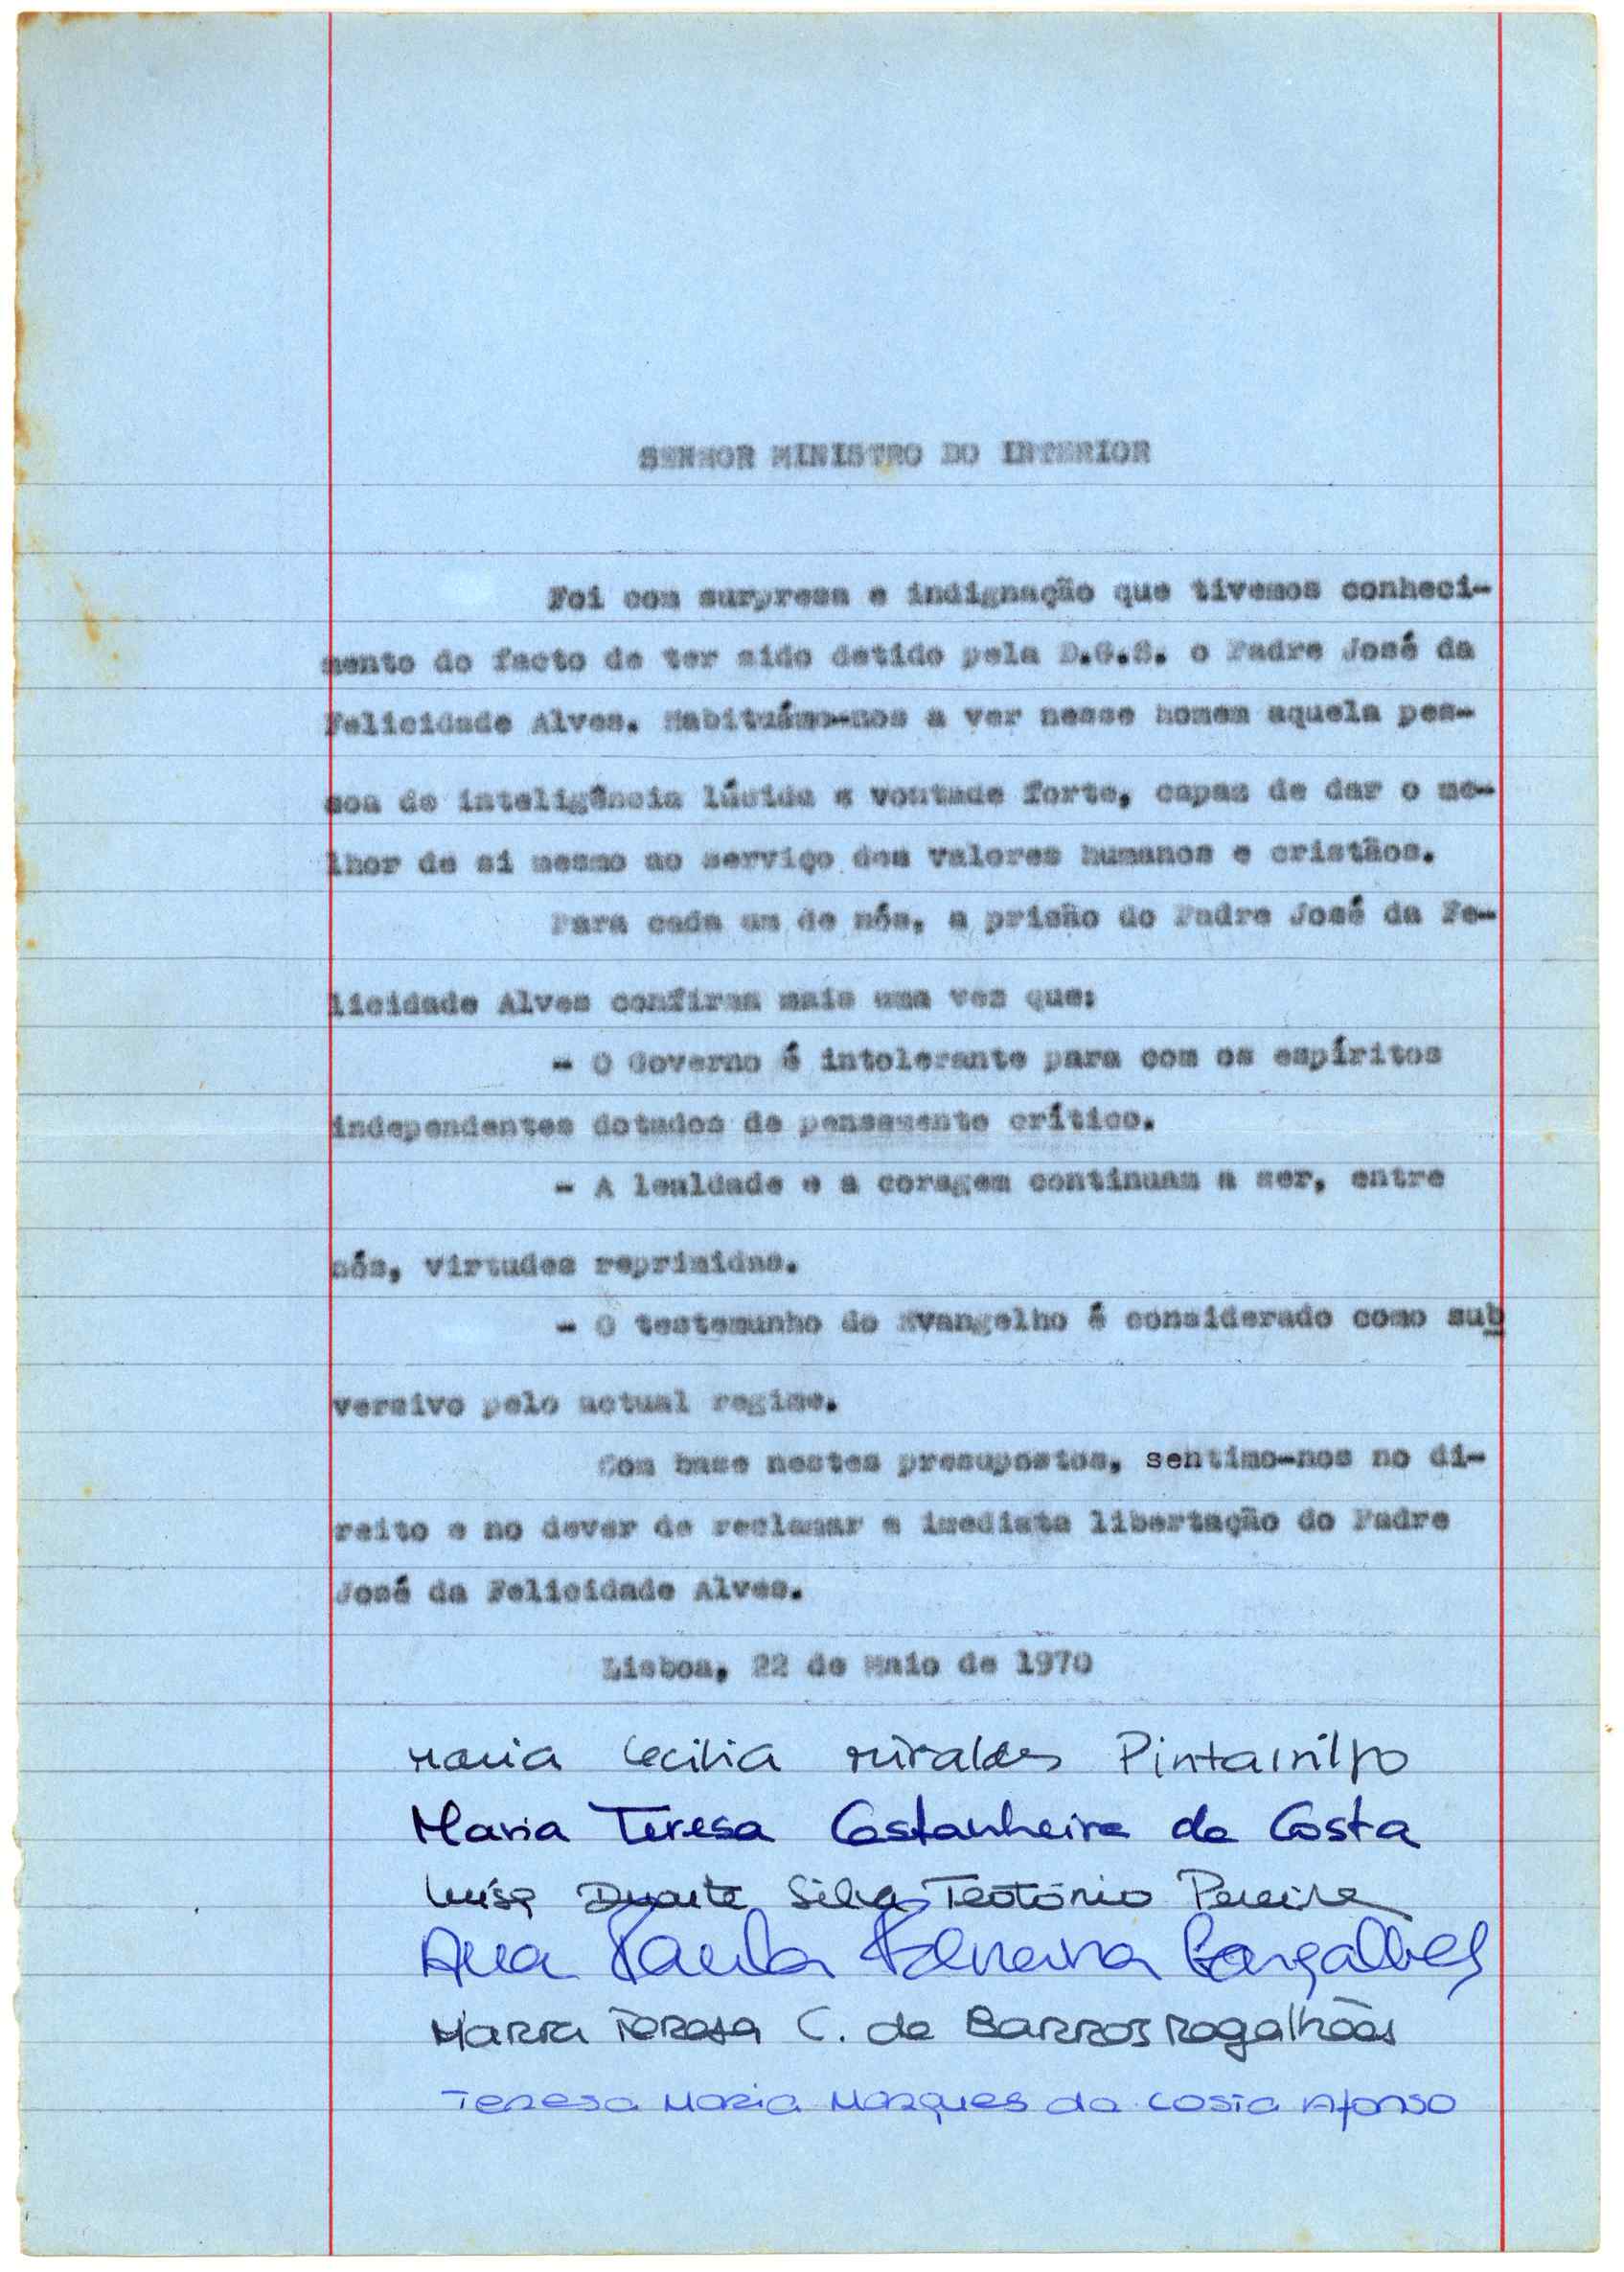 SENHOR MINISTRO DO INTERIOR
Foi com surpresa e indignação que tivemos conheci-
mento do facto de ter sido detido pela D.G.S. o Padre José da
Felicidade Alves. Habituámo-nos a ver nesse homem aquela pes-
soa de inteligência lúcida e vontade forte, capaz de dar o me-
lhor de si mesmo ao serviço dos valores humanos e cristãos.
Para cada um de nós, a prisão do Padre José da Fe-
licidade Alves confirma mais uma vez que:
- O Governo é intolerante para com os espíritos
independentes dotados de pensamento crítico.
- A lealdade e a coragem continuam a ser, entre
nós, virtudes reprimidas.
- O testemunho do Evangelho é considerado como sub
versivo pelo actual regime.
Com base nestes presupostos, sentimo-nos no di-
reito e no dever de reclamar a imediata libertação do Padre
José da Felicidade Alves.
Lisboa, 22 de Maio de 1970
Maria Cecilia
Maria Teresa Castanheira da Costa
Luísa Duarte Silva Teotónio Pereira
Ana Paula
Maria Teresa C. de Barros Magalhães
Teresa Maria Marques da Costa Afonso